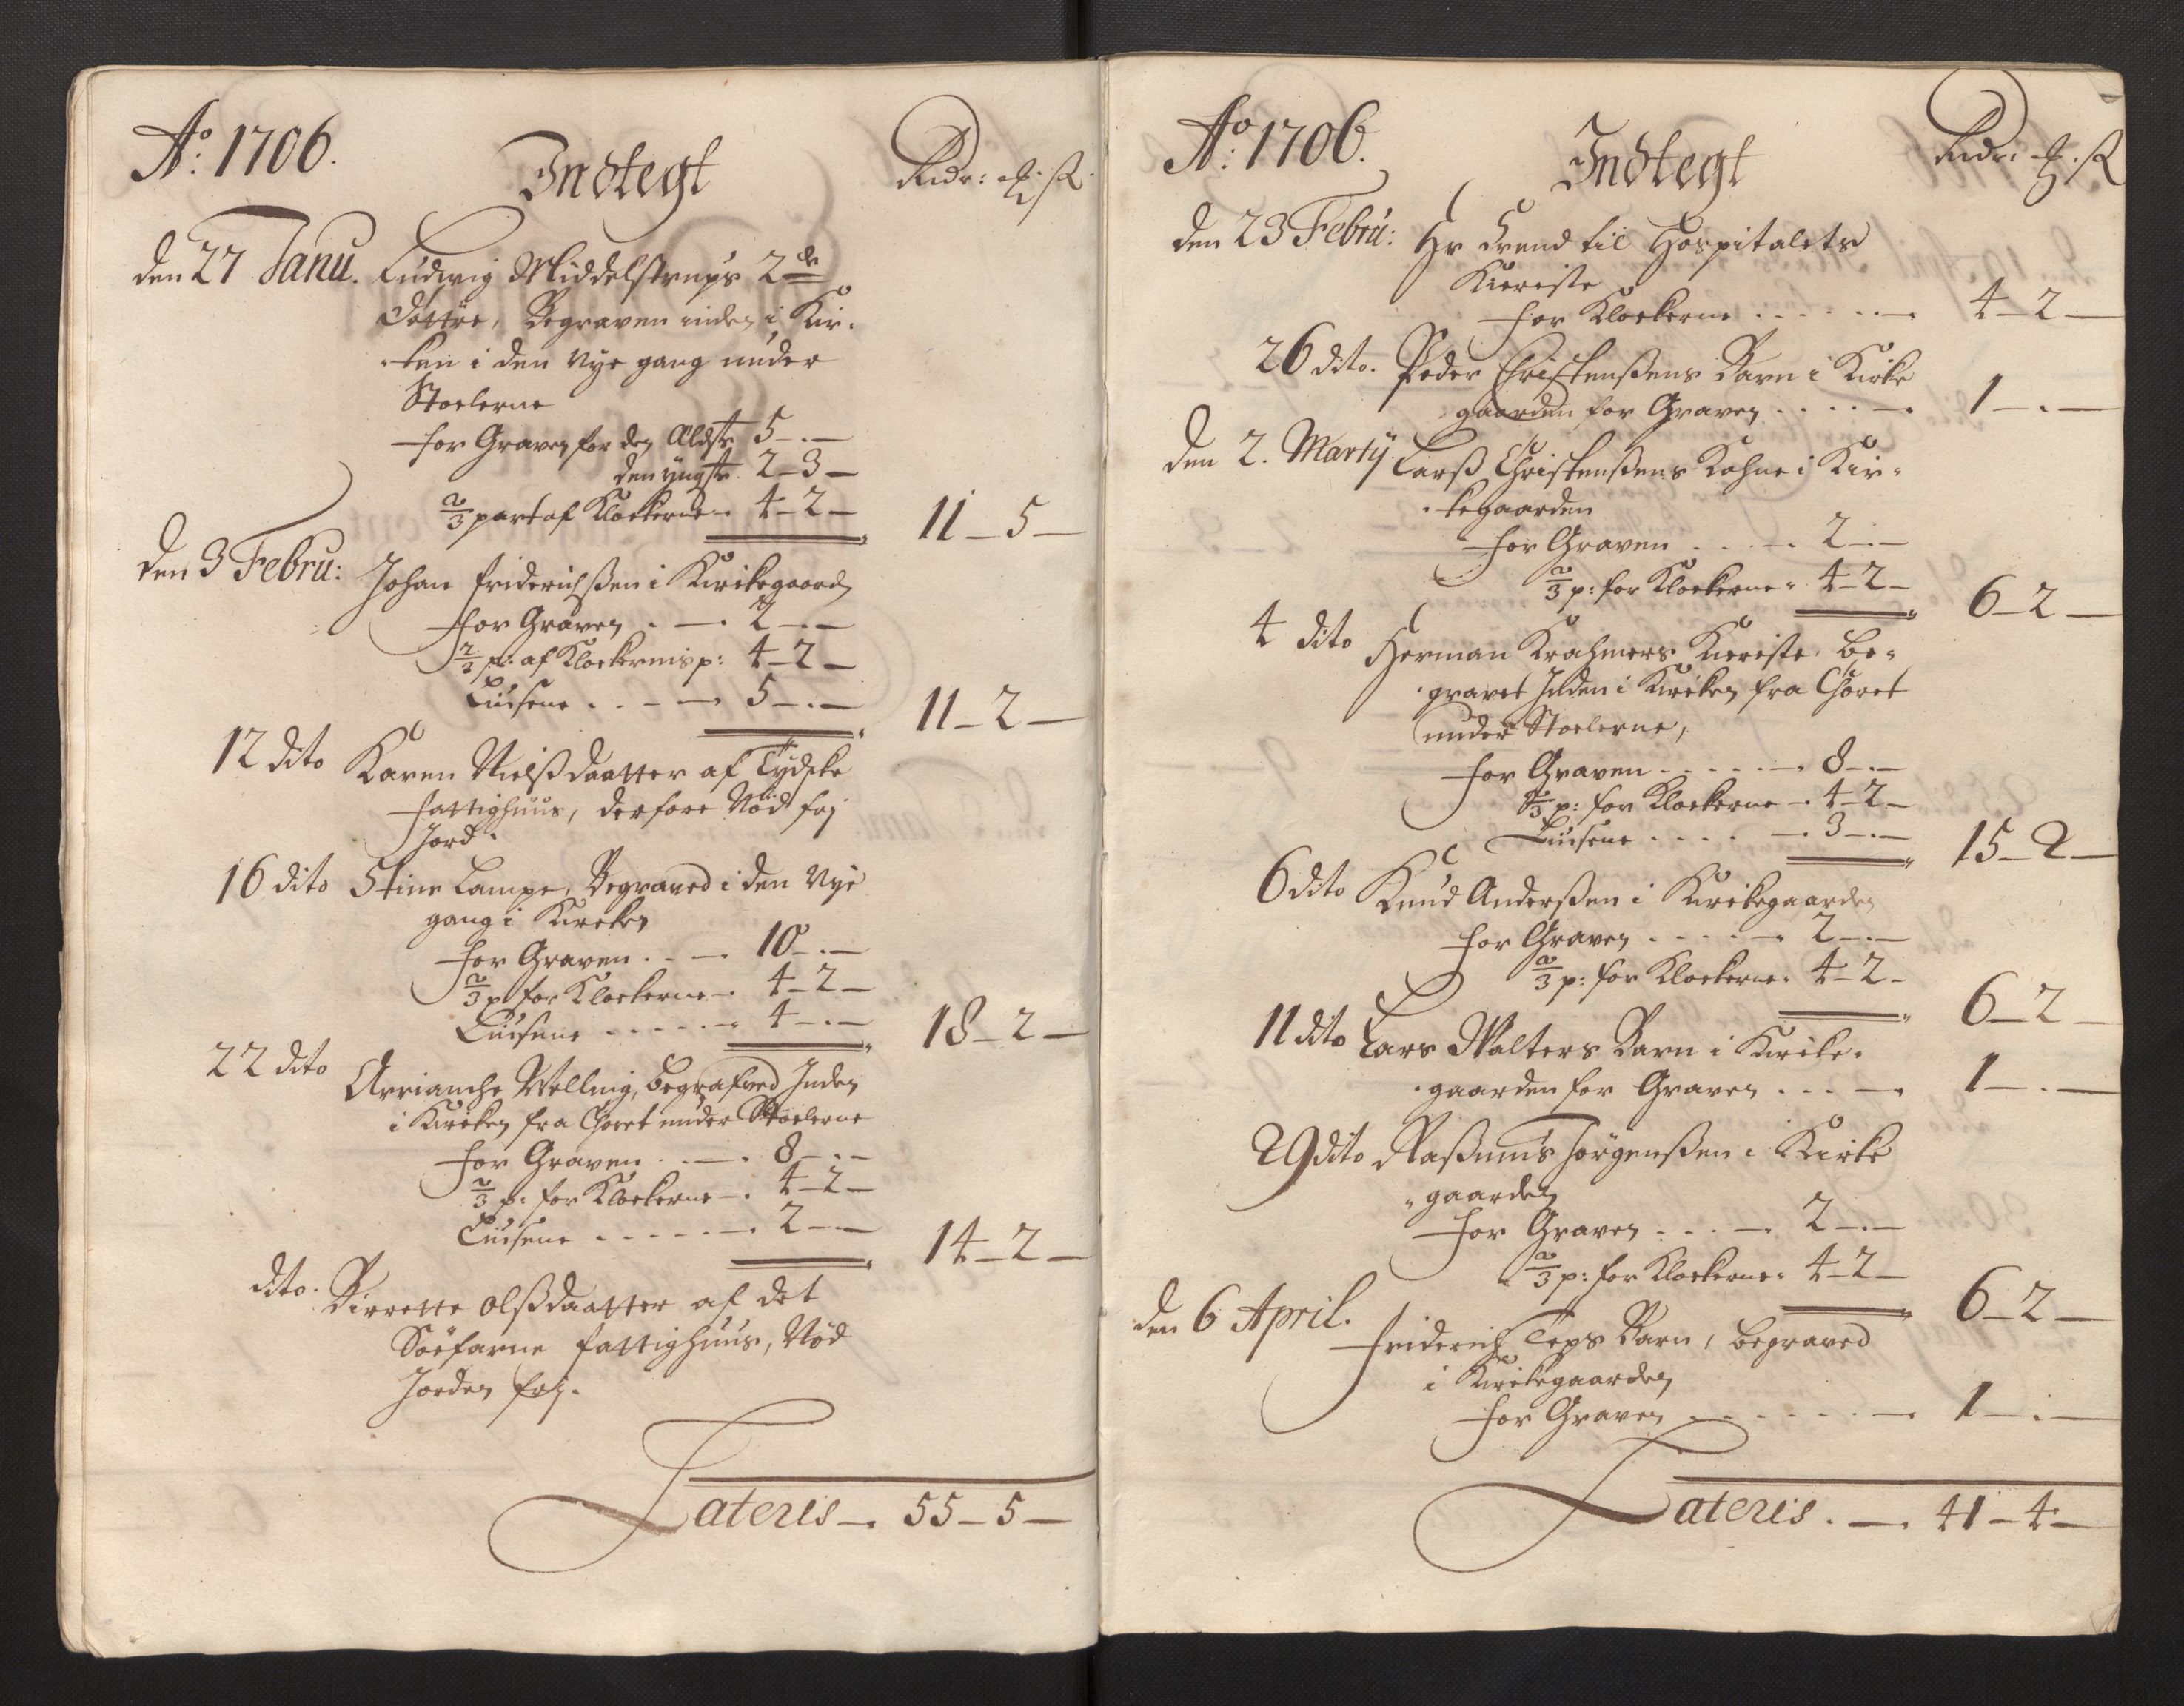 Ao: 1706.
Indtegt
Rdr: ℳ: ß
den 27 Janu. Ludwig Middelstrups 2de
Døttre, Begraven inden i Kir-
-ken i den Nye gang under
Stoelerne
for Graven for den Ældste 5 - . -
den yngste 2 - 3 -
2/3 part af Klockerne 4 - 2 - 11 - 5 -
den 3 Febru: Johan Friderichßen i Kirkegaarden
for Graven . - . 2 - . -
2/3 p: af Klockernis p: 4 - 2 -
Luisene . . - - 5 - . - 11 - 2 -
12 dito Karen Nielßdaatter af Tydske
fattighuus, derfore Nød frj
Jord.
16 dito Stine Lampe, Begraved i den Nye
gang i Kircken
for Graven . . - . 10 - . -
2/3 p for Klockerne - . 4 - 2 -
Luisene . . . . . 4 - . - 18 - 2 -
22 dito Arrianche Welling, begrafved Inden
i Kircken fra Choret under Stoelerne
for Graven . - . 8 - . -
2/3 p: for Klockerne - . 4 - 2 -
Luisene . . . . . - . 2 - . - 14 - 2 -
dito. Birrette Olßdaatter af det
Söefarne fattighuus, Nød
Jorden frj.
Lateris - . 55 - 5 -
Ao: 1706.
Indtegt
Rdr: ℳ: ß
den 23 Febru: Hr Trend til Hospitalets
Kiereste
for Klockerne . . . . . - . 4 - 2 -
26 dito. Peder Christenßens Barn i Kirke
gaarden for Graven . . . . - . 1 - . -
den 2. Martij Larß Christenßens Kohne i Kir-
-kegaarden
for Graven . . . - . 2 - . -
2/3 p: for Klockerne 4 - 2 - 6 - 2 -
4 dito Herman Krahmers Kiereste, be-
gravet Inden i Kircken fra Choret
under Stoelerne,
for Graven . . . . - . 8 - . -
2/3 p: for Klockerne - . 4 - 2 -
Luisene . . . . - . 3 - . - 15 - 2 -
6 dito Knud Anderßen i Kirckegaarden
for Graven . . . . - . 2 - . -
2/3 p: for Klockerne . 4 - 2 - 6 - 2 -
11 dito Lars Walters Barn i Kircke-
-gaarden for Graven . . . - . 1 - . -
29 dito Raßmus Jørgenßen i Kirke
-gaarden
for Graven . . . - . 2 - . -
2/3 p: for Klockerne 4 - 2 - 6 - 2 -
den 6 April. Friderich Teps Barn, begraved
i Kirckegaarden
for Graven . . . . . - . 1 - . -
Lateris . - . 41 - 4 -